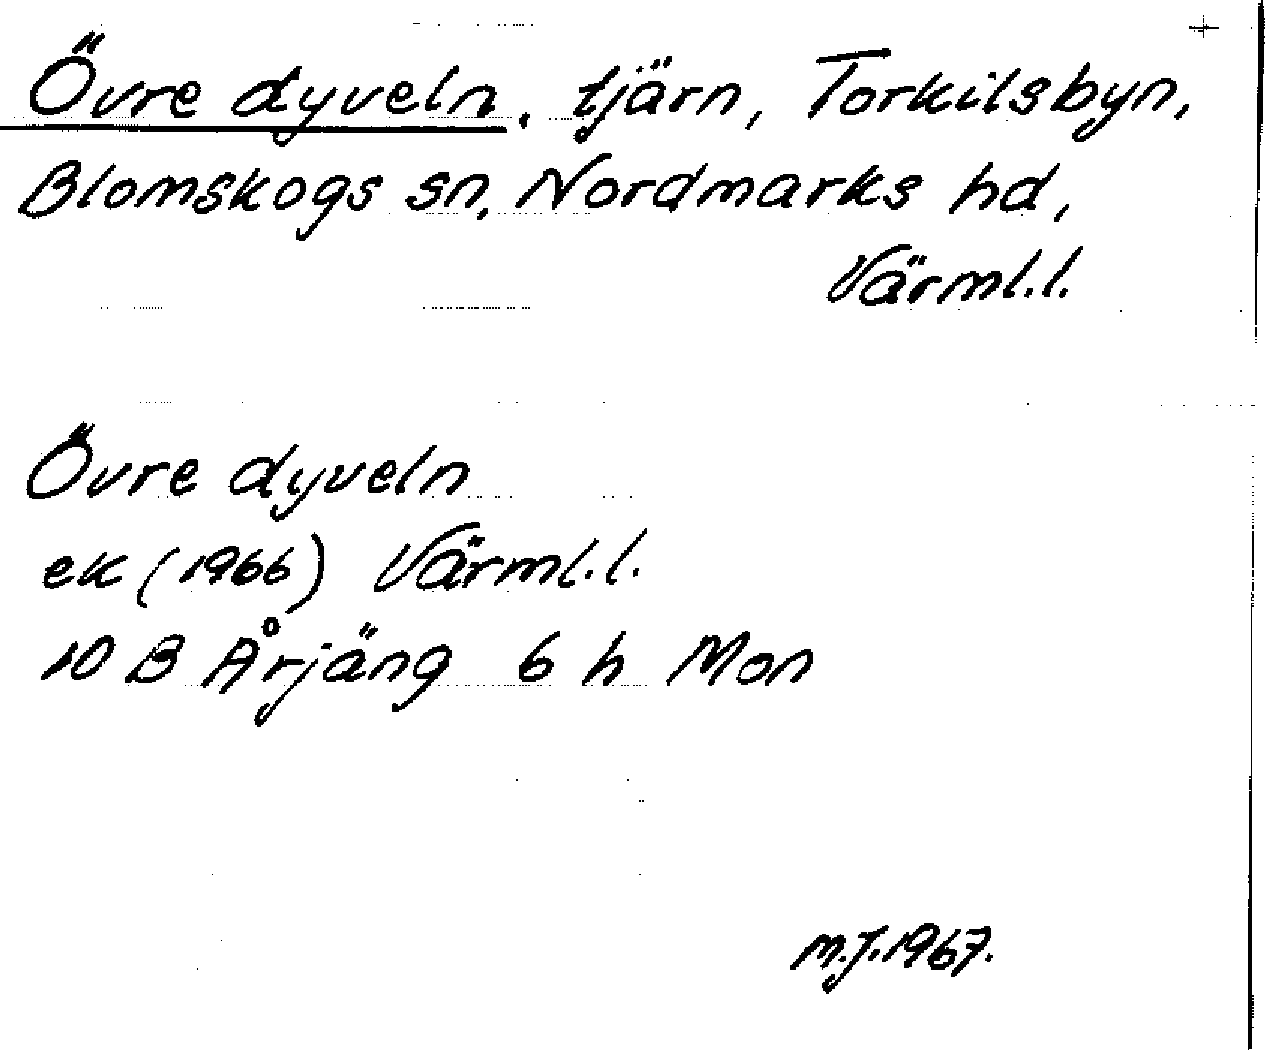 Övre dyveln, tjärn, Torkilsbyn,
Blomskogs sn, Nordmarks hd,
Värml.l.
Övre dyveln
ek (1966) Värml.l.
10 B Årjäng 6 h Mon
M.J.1967.